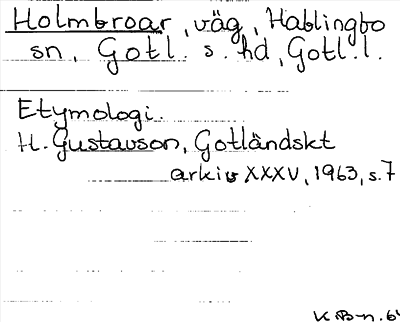 Holmbroar, väg, Hablingbo
sn, Gotl. s. hd, Gotl. l.
Etymologi.
H. Gustavson, Gotländskt
arkiv XXXV, 1963, s. 7